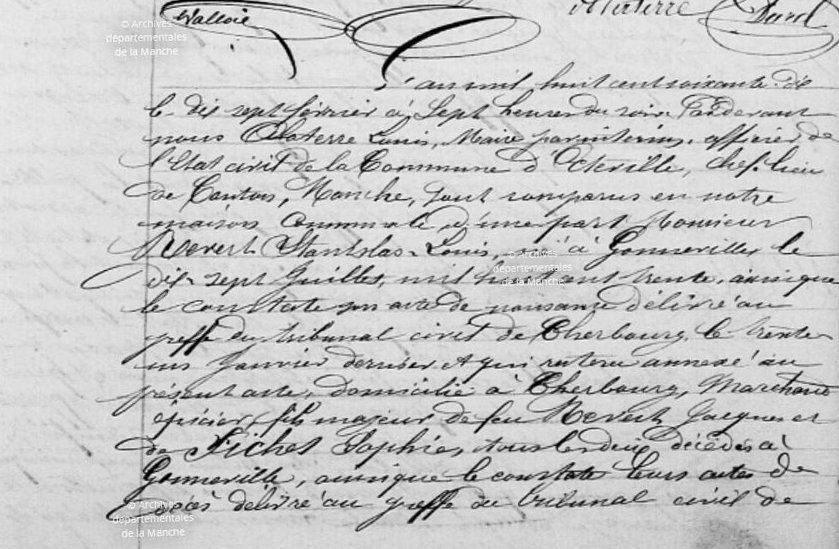 © Archives
départementales
de la Manche
Vallois
Auterre Durel
L'an mil huit cent soixante-dix
le dix sept février à Sept heures du soir Pardevant
nous Delaterre Louis, Maire par intérim, officier de
l'Etat civil de la Commune d'Octeville, chef-lieu
de Canton, Manche, Sont comparus en notre
maison Communale d'une part Monsieur
Revert Stanislas-Louis, né à Gonneville, le
dix-sept Juillet, mil huit cent trente, ainsi que
le constate son acte de naissance délivré au
greffe du tribunal civil de Cherbourg le trente
un Janvier dernier, et qui restera annexé au
présent acte, domicilié à Cherbourg, Marchand
épicier, fils majeur de feu Revert Jacques et
de Fichet Sophie, tous les deux décédés à
Gonneville, ainsi que le constate leurs actes de
décès délivré au greffe du tribunal civil de
© Archives
départementales
de la Manche
© Archives
départementales
de la Manche